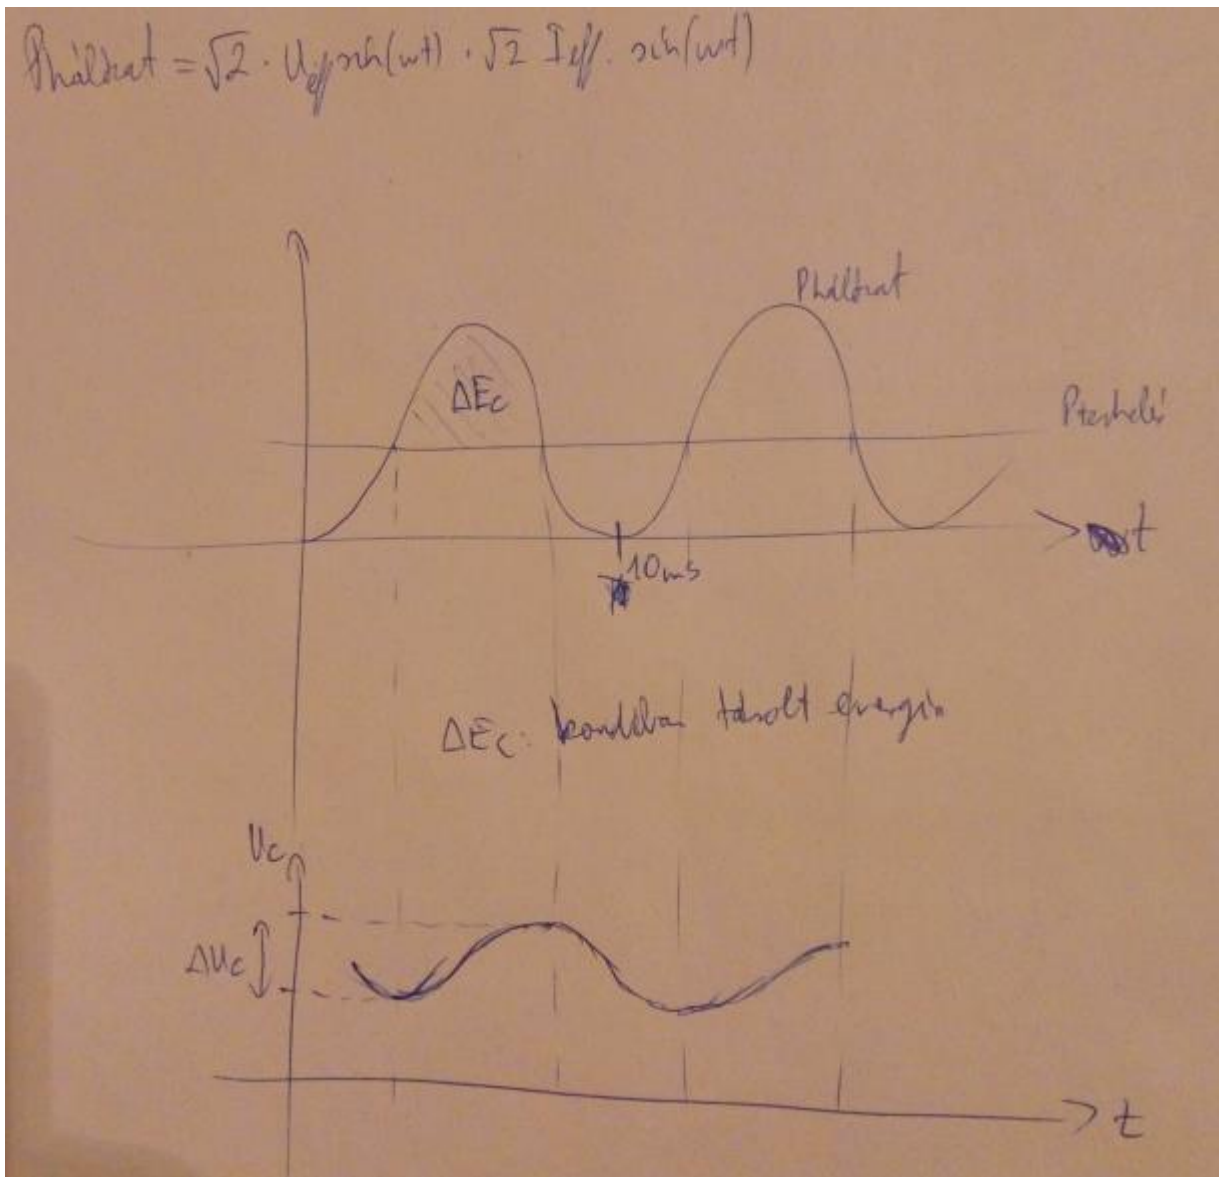 Phálózat = √2 · Ueff sin(ωt) · √2 Ieff · sin(ωt)
Phálózat
ΔEc
Pterhelés
t
10ms
ΔEc: kondiban tárolt energia
Uc
ΔUc
t